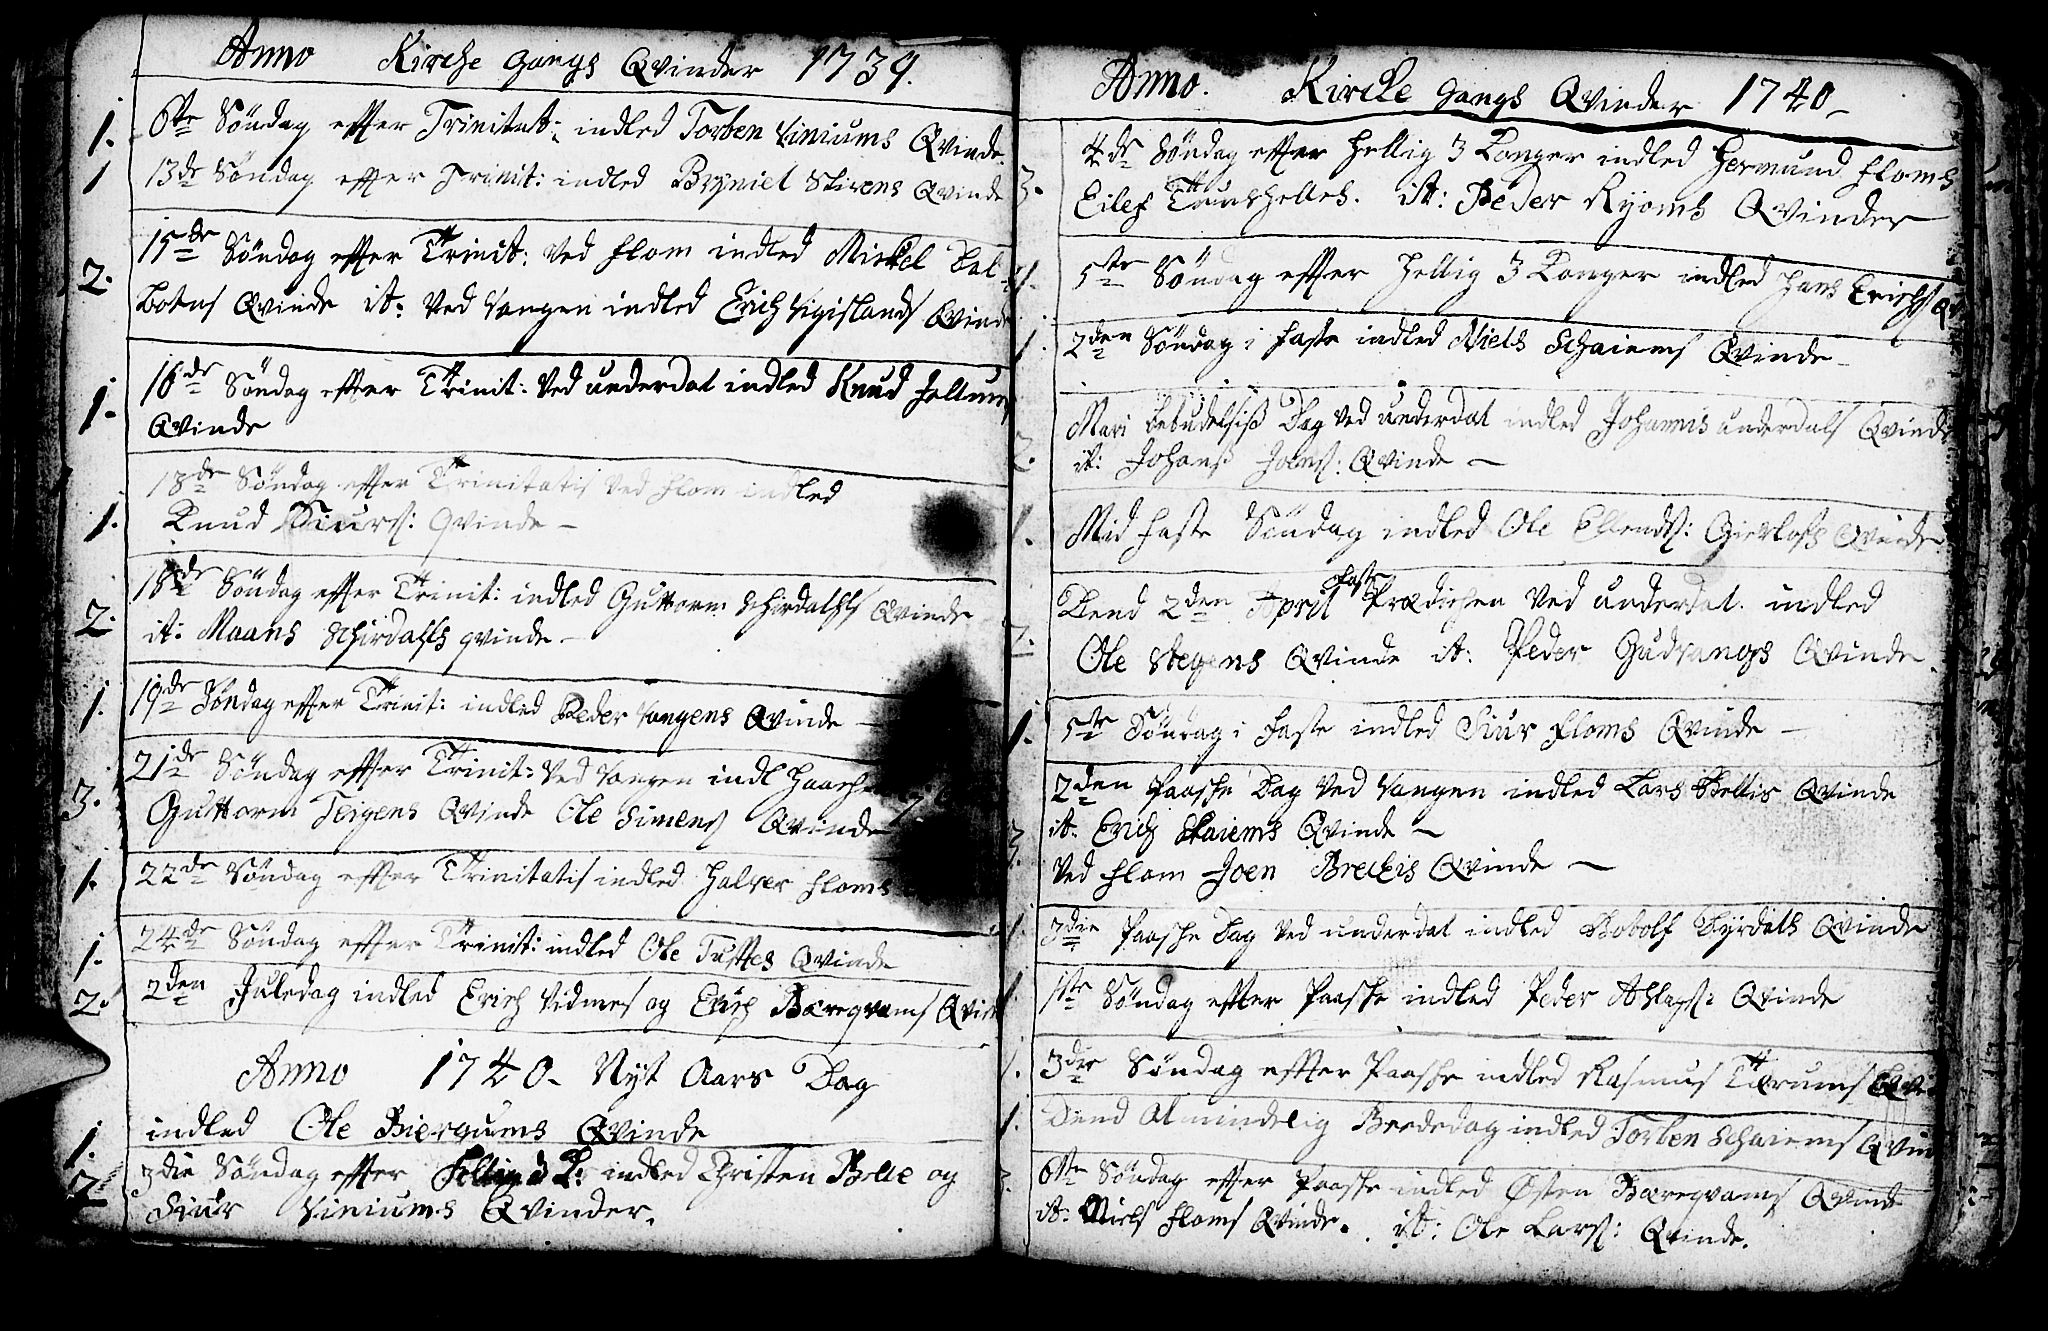 Anno Kirche gangs Qvinder 1739.
1. 6te Søndag effter Trinitat: indled Torben Viniums Qvinde.
1 13de Søndag effter Trinit: indled Bryniel Stirens Qvinde
15de Søndag effter Trinit: Ved Flom indled Mickel Dal
2. botns Qvinde it: Ved Vangen indled Erich Vigislands Qvinde
1. 16de Søndag effter Trinit: Ved underdal indled Knud
Qvinde
18de Søndag effter Trinitatis Ved Flom indled
1. Knud Siurs: Qvinde –
18de Søndag effter Trinit: indled Guttorm Schirdahls Qvinde
2. it: Maans Schirdahls qvinde –
1. 19de Søndag effter Trinit: indled Peder Vangens Qvinde –
21de Søndag effter Trinit: Ved Vangen indl
3. Guttorm Teigens Qvinde Ole Simens Qvinde
1. 22de Søndag effter Trinitatis indled Halver Floms
1. 24de Søndag effter Trinit: indled Ole Tufftes Qvinde
2. 2den Juledag indled Erich Vidmes og Erich Bæreqvams Qvin
Anno 1740. Nyt Aars Dag
1. indled Ole Biergums Qvinde
2 3die Søndag effter Hellig 3 K: indled Christen Belle og
Siur Viniums Qvinder.
Anno. Kirche gangs Qvinder 1740 –
4de Søndag effter Hellig 3 Konger indled Hermund Floms
3. Eilef it: Peder Ryoms Qvinder
1. 5te Søndag effter Hellig 3 Konger indled Hans Erichs Qv
1. 2den Søndag i Faste indled Niels Schaiems Qvinde –
Mari bebudelsis Dag Ved underdal indled Johannis underdals Qvinde
2. it: Johans Joens: Qvinde –
1. Mid Faste Søndag indled Ole Ellends: Gierløfs Qvinde
Dend 2den April Faste Prædichen Ved underdal. indled
2. Ole Stegens Qvinde it: Peder Gudvangs Qvinde.
1. 5te Søndag i Faste indled Siur Floms Qvinde –
2den Paaske Dag Ved Vangen indled Lars Bellis Qvinde
it: Erich Skaiems Qvinde –
3. Ved Flom Joen Breckis Qvinde –
1. 3die Paaske Dag Ved underdal indled Botolf Dyrdahls Qvinde
1. 1ste Søndag effter Paaske indled Peder Qvinde
1. 3die Søndag effter Paaske indled Rasmus Qvin
1. Dend Almindelig Beededag indled Torben Schaiems Qvin
3. 6te Søndag effter Paaske indled Østen Bæreqvams Qvinde
it: Niels Floms Qvinde. it: Ole Lars: Qvinde.